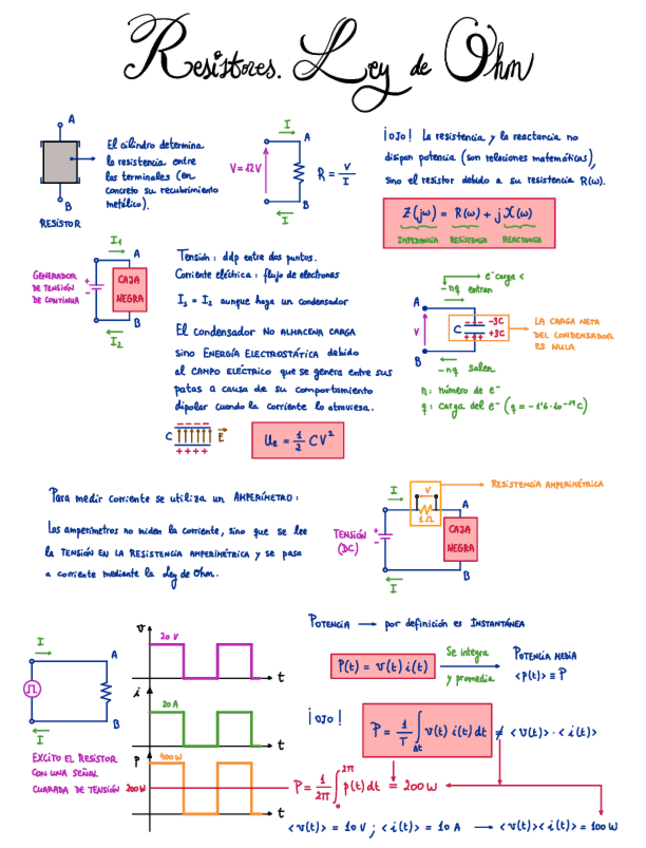 Resistores. Ley de Ohm
A
B
RESISTOR
El cilindro determina
la resistencia entre
los terminales (en
concreto su recubrimiento
metálico).
I
A
V=12V
R = V/I
B
I
¡OJO! La resistencia y la reactancia no
disipan potencia (son relaciones matemáticas),
sino el resistor debido a su resistencia R(ω).
Z(jω) = R(ω) + jX(ω)
IMPEDANCIA RESISTENCIA REACTANCIA
I1
A
GENERADOR
DE TENSIÓN
DE CONTINUA
+
-
CAJA
NEGRA
B
I2
Tensión: ddp entre dos puntos.
Corriente eléctrica: flujo de electrones
I1 = I2 aunque haya un condensador
El condensador NO ALMACENA CARGA
sino ENERGÍA ELECTROSTÁTICA debido
al CAMPO ELÉCTRICO que se genera entre sus
patas a causa de su comportamiento
dipolar cuando la corriente lo atraviesa.
C
- - - -
E
+ + + +
Ue = 1/2 CV²
e- carga <
-nq entran
A
V
C
- - - - -3C
+ + + + +3C
B
-nq salen
LA CARGA NETA
DEL CONDENSADOR
ES NULA
n: número de e-
q: carga del e- (q = -1'6·10⁻¹⁹C)
Para medir corriente se utiliza un AMPERÍMETRO:
Los amperímetros no miden la corriente, sino que se lee
la TENSIÓN EN LA RESISTENCIA AMPERIMÉTRICA y se pasa
a corriente mediante la Ley de Ohm.
I
V
1Ω
RESISTENCIA AMPERIMÉTRICA
A
TENSIÓN
(DC)
+
-
CAJA
NEGRA
B
I
I
A
B
I
EXCITO EL RESISTOR
CON UNA SEÑAL
CUADRADA DE TENSIÓN
v
20 V
t
i
20 A
t
P
400W
200W
t
POTENCIA → por definición es INSTANTÁNEA
P(t) = v(t) i(t)
Se integra
y promedia
POTENCIA MEDIA
<p(t)> ≡ P
¡OJO!
P = 1/T ∫Δt v(t) i(t) dt ≠ <v(t)>·<i(t)>
P = 1/2π ∫₀^2π p(t) dt = 200W
<v(t)> = 10V ; <i(t)> = 10 A → <v(t)><i(t)> = 100W